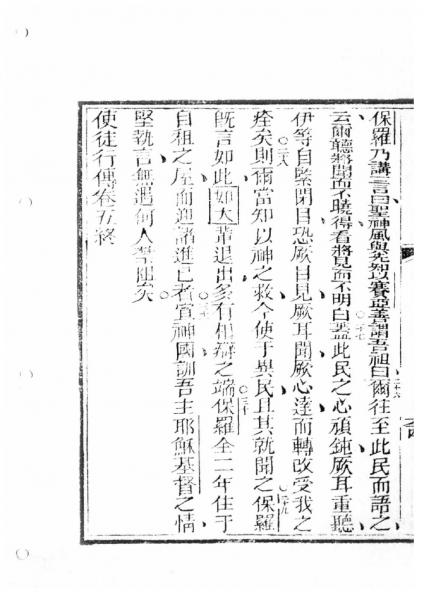 保羅乃講一言曰聖神風與先知以賽亞善謂吾祖曰爾往至此民而語之
云爾聽將聞而不曉得看將見而不明白蓋此民之心頑鈍厥耳重聽
伊等自緊閉目恐厥目見厥耳聞厥心達而轉改受我之
痊矣則爾當知以神之救今使于異民且其就聞之保羅
既言如此如大輩退出多有相辯之端保羅全二年住于
自祖之屋而迎諸進己者宣神國訓吾主耶穌基督之情
堅執言無遇何人禁阻矣
使徒行傳卷五終